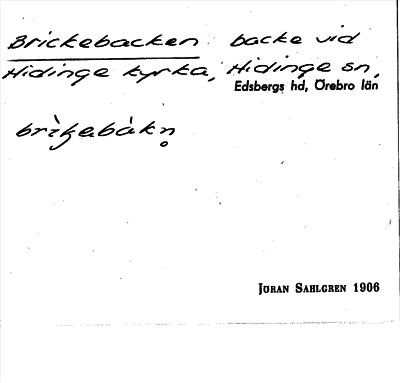 Brickebacken backe vid
Hidinge kyrka, Hidinge sn,
Edsbergs hd, Örebro län
brìʒabàkn̥
JÖRAN SAHLGREN 1906